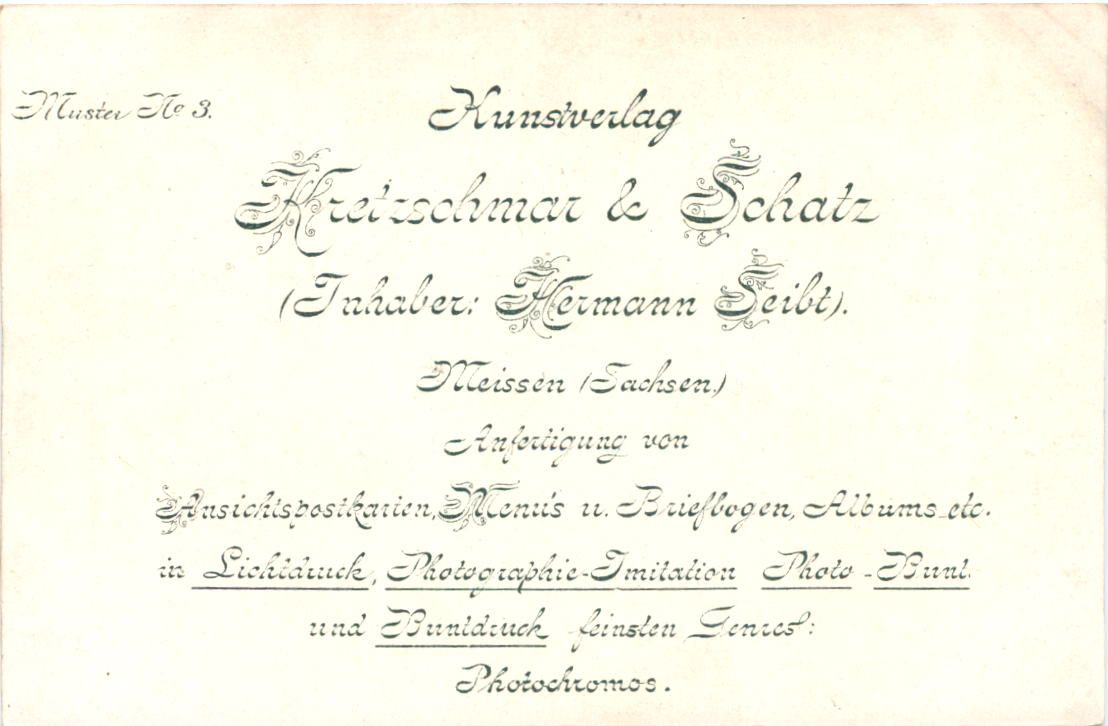 Muster No 3.
Kunstverlag
Kretzschmar & Schatz
(Inhaber: Hermann Seibt).
Meissen (Sachsen.)
Anfertigung von
Ansichtspostkarten, Menüs u. Briefbogen, Albums etc.
in Lichtdruck, Photographie-Imitation Photo-Bunt
und Buntdruck feinsten Genres:
Photochromos.